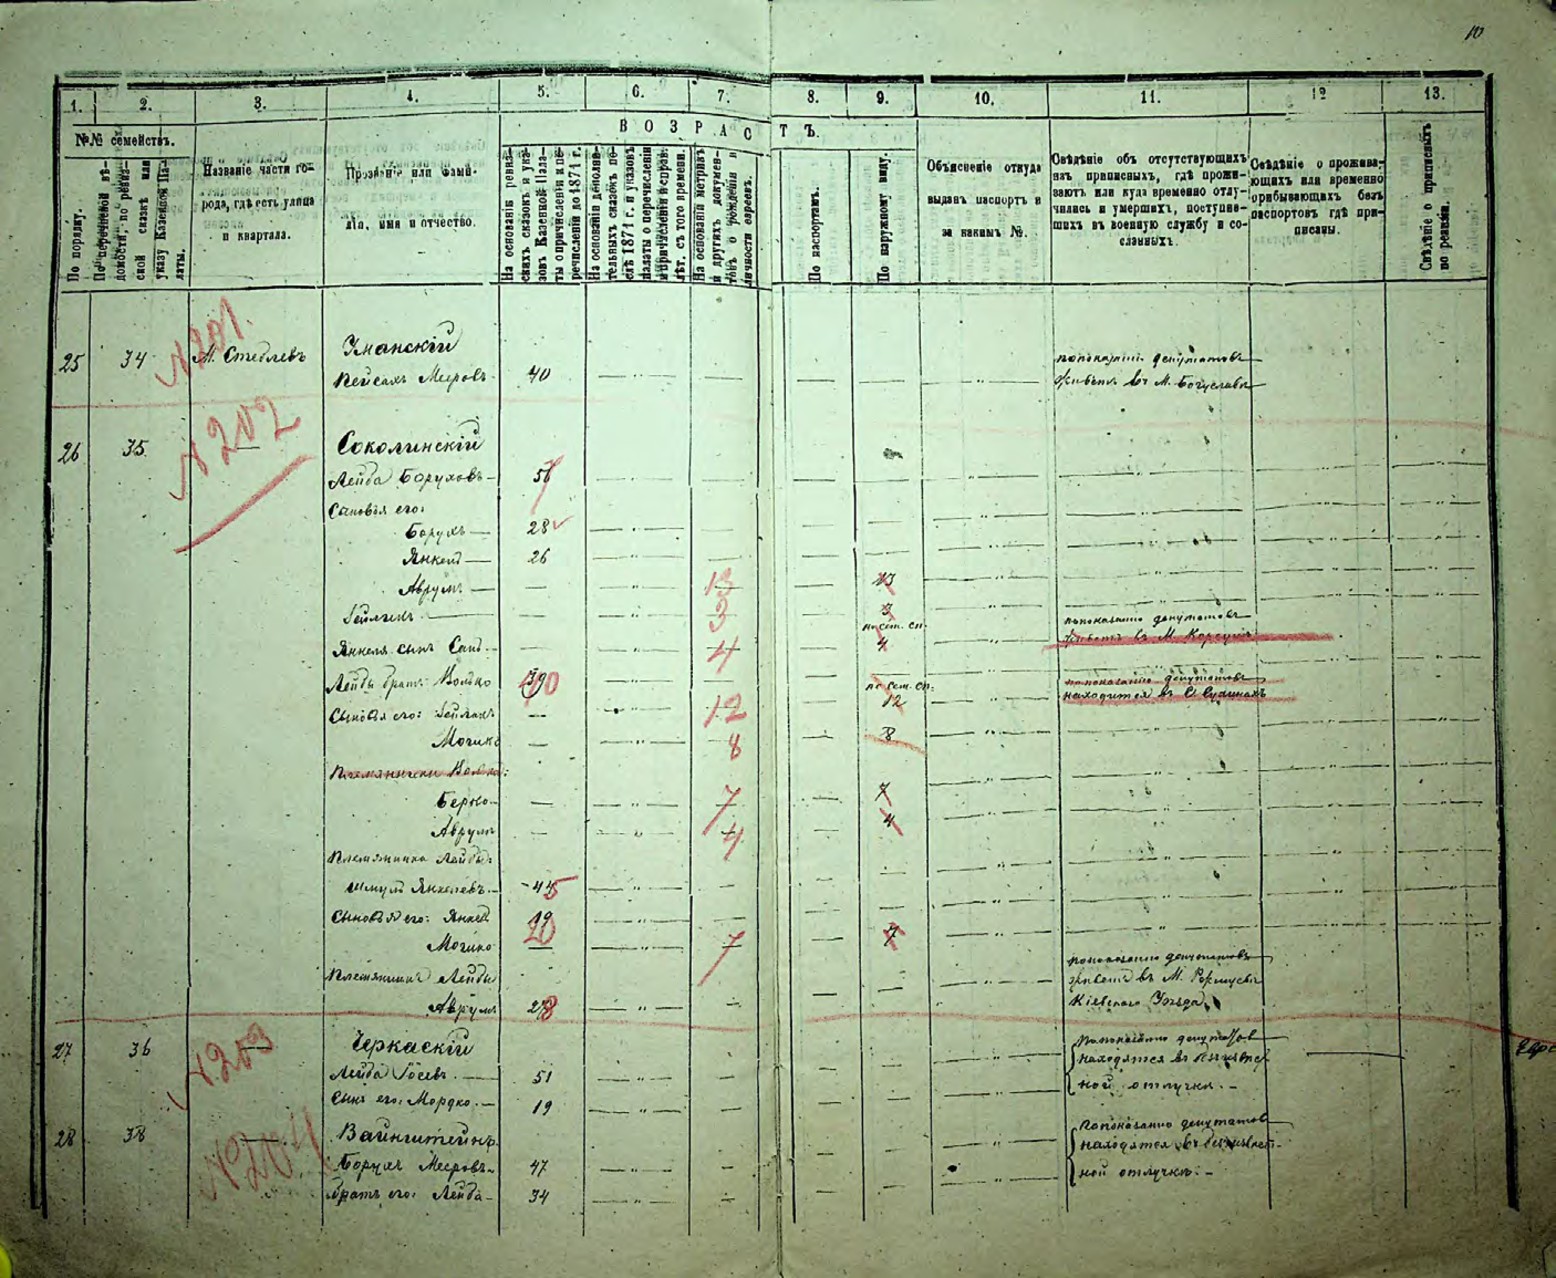 10
1. 2. 3. 4. 5. 6. 7. 8. 9. 10. 11. 12 13.
№№ семействъ.
В О З Р А С Т Ъ.
По порядку.
По перечневой вѣ-
домости, по ревиз-
ской сказкѣ или
указу Казенной Па-
латы.
Названіе части го-
рода, гдѣ есть улица
и квартала.
Прозваніе или фами-
лія, имя и отчество.
На основаніи ревиз-
скихъ сказокъ и ука-
зовъ Казенной Пала-
ты о причисленіи и пе-
речисленіи до 1871 г.
На основаніи дополни-
тельныхъ сказокъ по-
слѣ 1871 г. и указовъ
палаты о перечисленіи
и причисленіи и справ.
лѣт. съ того времени.
На основаніи метрикъ
и другихъ докумен-
товъ о рожденіи и
личности евреевъ.
По паспортамъ.
По наружному виду.
Объясненіе откуда
выданъ паспортъ и
за какимъ №.
Свѣдѣніе объ отсутствующихъ
изъ приписныхъ, гдѣ прожи-
ваютъ или куда временно отлу-
чились и умершихъ, поступив-
шихъ въ военную службу и со-
сланныхъ.
Свѣдѣніе о прожива-
ющихъ или временно
прибывающихъ безъ
паспортовъ гдѣ при-
писаны.
Свѣдѣніе о приписныхъ
по ревизіи.
N 201.
25 34 М. Стеблевъ Уманскій
Пейсахъ Мееровъ 40
по показанію депутатовъ
живетъ въ М. Богуславѣ
N 202
26 35. Соколинскій
Лейба Боруховъ 58
Сыновья его:
Борухъ 28
Янкель 26
Аврумъ 13 13
Гейлихъ 3 3
по показанію депутатовъ
живетъ въ М. Корсунѣ
по сем. сп.
Янкеля сынъ 4 4
Лейбы братъ: Волько 39 40
по показанію депутатовъ
находится въ С.
по сем. сп.
Сыновья его: 12 12
Мошко 8 8
Племянники Волька:
Берко 7 7
Аврумъ 4 4
Племянникъ Лейбы:
Шмуль Янкелевъ 44 5
Сыновья его: Янкель 19 20
Мошко 7 7
Племянникъ Лейбы
Аврумъ 27 8
по показанію депутатовъ
живетъ въ М. Ржищевѣ
Кіевскаго Уѣзда
N 203
27 36 Черкаскій
Лейба Іосевъ 51
Сынъ его: Мордко 19
По показанію депутатов
находятся въ безъизвѣст
ной отлучкѣ.
N 204
28 38 Вайнштейнъ
Борухъ Мееровъ 47
братъ его: Лейба 34
По показанію депутатов
находятся въ безъизвѣст-
ной отлучкѣ.